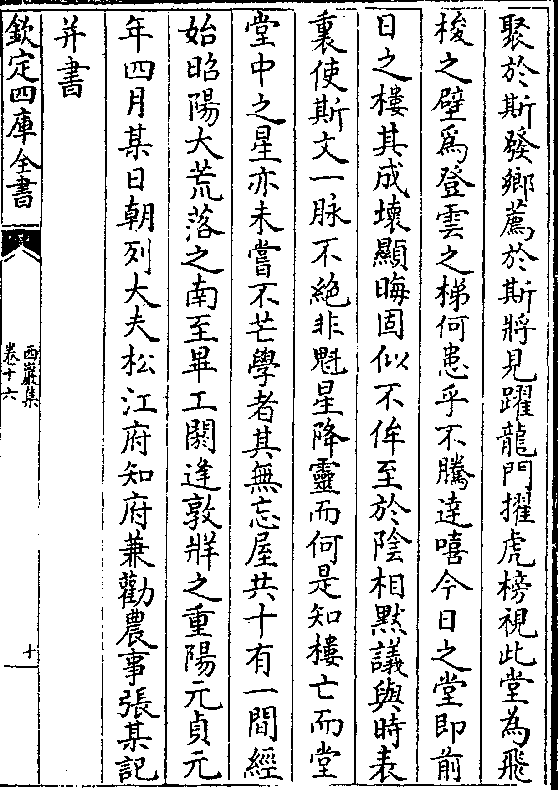 聚於斯發鄉薦於斯將見躍龍門擢虎榜視此堂為飛
梭之壁爲登雲之梯何患乎不騰達嘻今日之堂即前
日之樓其成壞顯晦固似不侔至於陰相黙議與時表
裏使斯文一脉不絶非魁星降靈而何是知樓亡而堂
堂中之星亦未嘗不芒學者其無忘屋共十有一間經
始昭陽大荒落之南至畢工閼逢敦牂之重陽元貞元
年四月某日朝列大夫松江府知府兼勸農事張某記
并書
欽定四庫全書
西巖集
卷十六
十